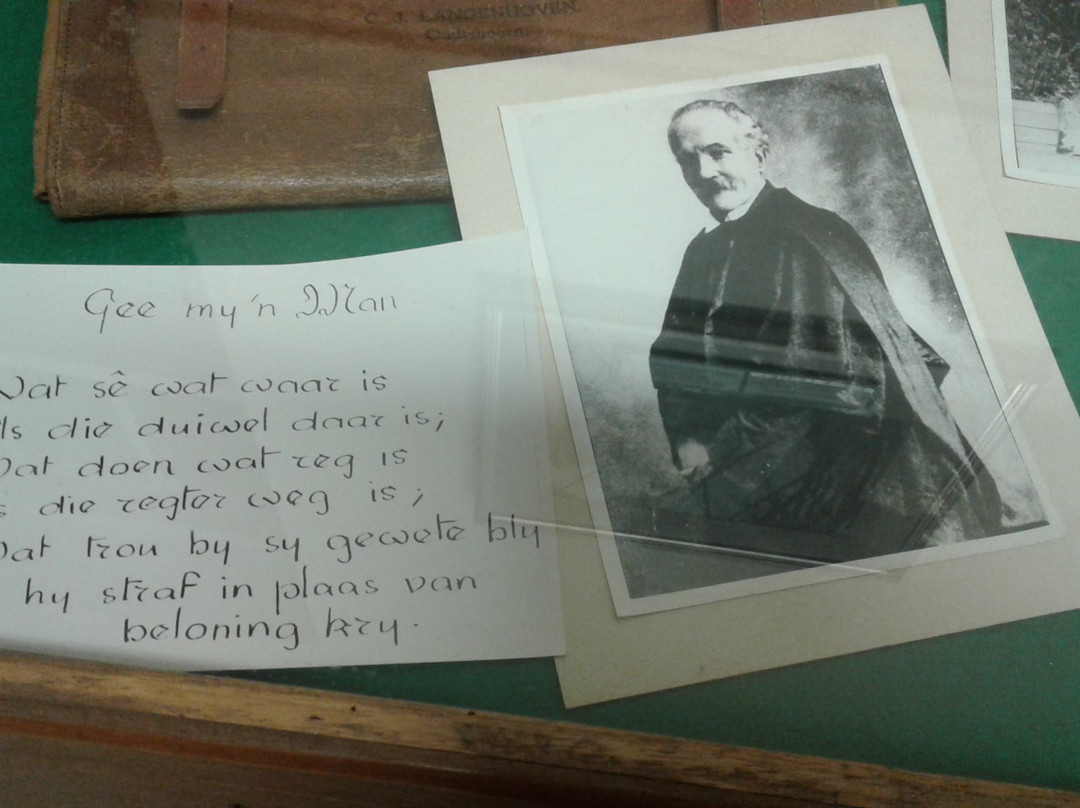 C. J. LANGENHOVEN.
Oudtshoorn.
Gee my 'n Man
Wat sê wat waar is
Als die duiwel daar is;
Wat doen wat reg is
die regter weg is;
Wat trou by sy gewete bly
hy straf in plaas van
beloning kry.